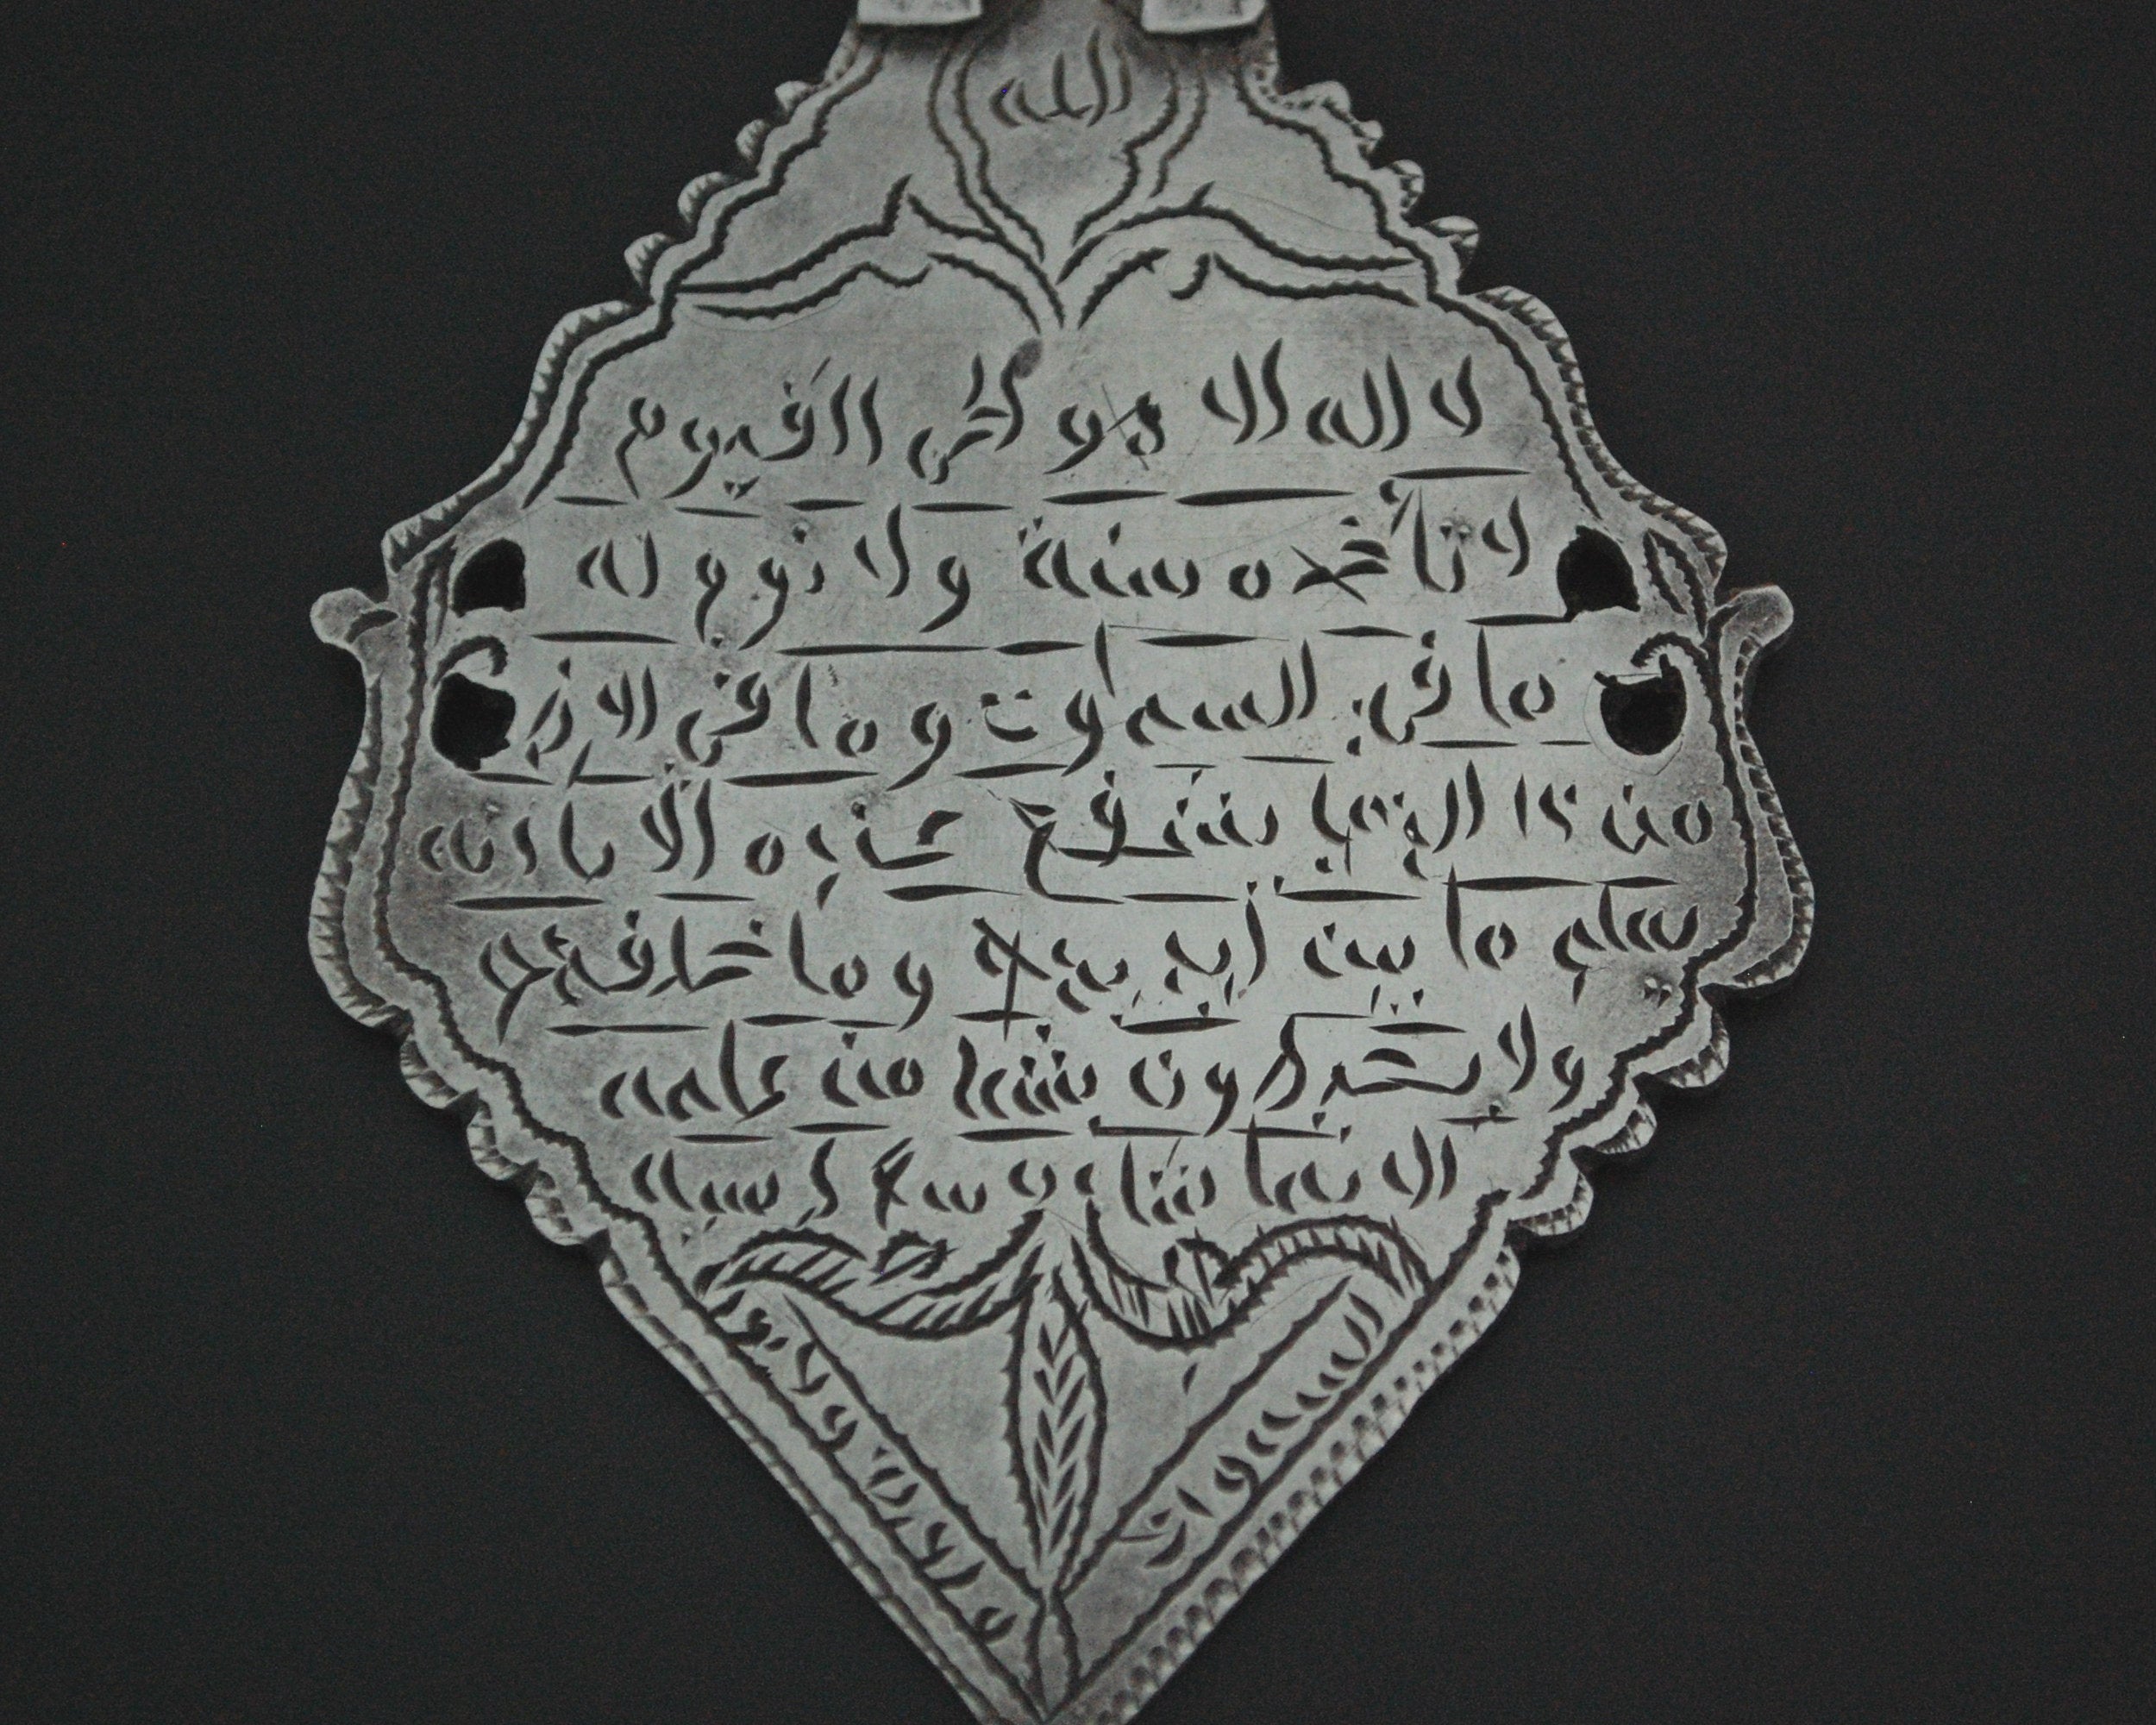 الله
لا اله الا هو الحى القيوم
لا تأخذه سنة ولا نوم له
ما في السماوت وما في الارض
من ذا الذي يشفع عنده الا باذنه
يعلم ما بين أيديهم وما خلفهم
ولا يحيطون بشيا من علمه
الا بما شا وسع كرسيه
السموات والار
ولا يو